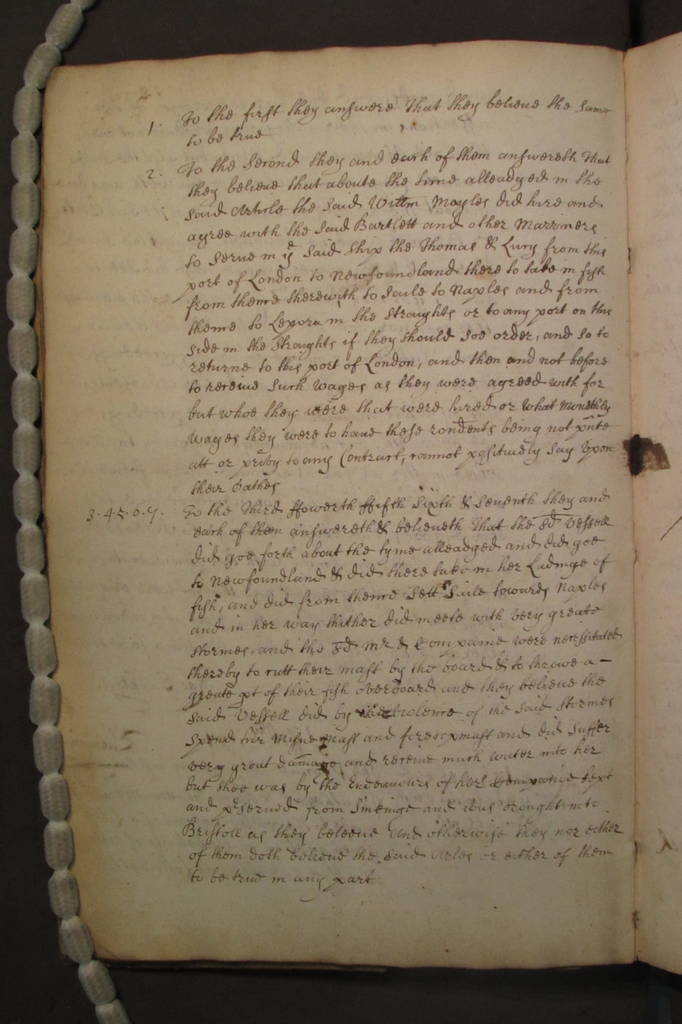 1. To the first they answere that they beleeve the same
to be true
2. To the second they and each of them answereth that
they beleeve that aboute the time alleadged in the
said Article the said Willm Mayles did hire and
agree with the said Bartlett and other Marriners
to serve in ye said ship the Thomas & Lucy from this
port of London to Newfoundland there to take in fish
from thence therewith to saile to Naples and from
thence to in the Straughts or to any port on this
side in the Straughts if they should soe order, and so to
returne to this port of London, and then and not before
to receive such wages as they were agreed with for
but whoe they were that were hired or what Monethly
wages they were to have these rondents being not pnte
att or privy to any Contract, cannot positively say upon
their Oathes
3. 4. 5. 6. 7. To the Third ffowerth ffifth Sixth & Seventh they and
each of them answereth & beleeveth that the sd Vessell
did goe forth about the tyme alleadged and did goe
to Newfoundland & did there take in her Ladinge of
fish, and did from thence sett saile towards Naples
and in her way thither did meete with very greate
stormes and the sd Mr & Companie were necessitated
thereby to cutt their mast by the board & to throwe a
greate pt of their fish overboard and they beleeve the
said Vessell did by the violence of the said stormes
spend her Misne mast and foretopmast and did suffer
very great damage and receive much water into her
but shee was by the Endeavours of her Companie kept
and pserved from sinkinge and was brought into
Bristoll as they beleeve and otherwise they nor either
of them doth beleeve the said Arles or either of them
to be true in any part